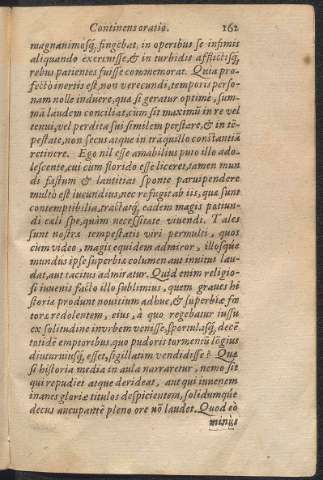 Continens oratiō. 162
magnanimosq́; fingebat, in operibus se infimis
aliquando exercuisse, & in turbidis afflictisq́;
rebus patientes fuisse commemorat. Quia pro-
fecto inertis est, non verecundi, temporis perso-
nam nolle induere, qua si geratur optime, sum-
mā laudem conciliat, cùm sit maximū in re vel
tenui, vel perdita sui similem perstare, & in tē-
pestate, non secus atque in tranquillo constantiā
retinere. Ego nil esse amabilius puto illo ado-
lescente, cui cùm florido esse liceret, tamen mun
di fastum & lautitias sponte paruipendere
multò est iucundius, nec refugit ab iis, quæ sunt
contemptibilia, tractatq́; eadem magis patiun-
di cali spe, quàm necessitate viuendi. Tales
sunt nostræ tempestatis viri permulti, quos
cùm video, magis equidem admiror, illosque
mundus ipse superbiæ columen aut inuitus lau-
dat, aut tacitus admiratur. Quid enim religio-
si iuuenis facto illo sublimius, quem graues hi
storiæ produnt nouitium adhuc, & superbiæ fas
tora redolentem, eius, à quo regebatur iussu
ex solitudine in vrbem venisse, sportulasq́; decē
totidē emptoribus, quo pudoris tormentū lōgius
diuturniusq́; esset, sigillatim vendidisse? Quæ
si historia media in aula narraretur, nemo sit
qui repudiet atque derideat, aut qui iuuenem
inanes gloriæ titulos despicientem, solidumque
decus aucupantē pleno ore nō laudet. Quod eò
minùs